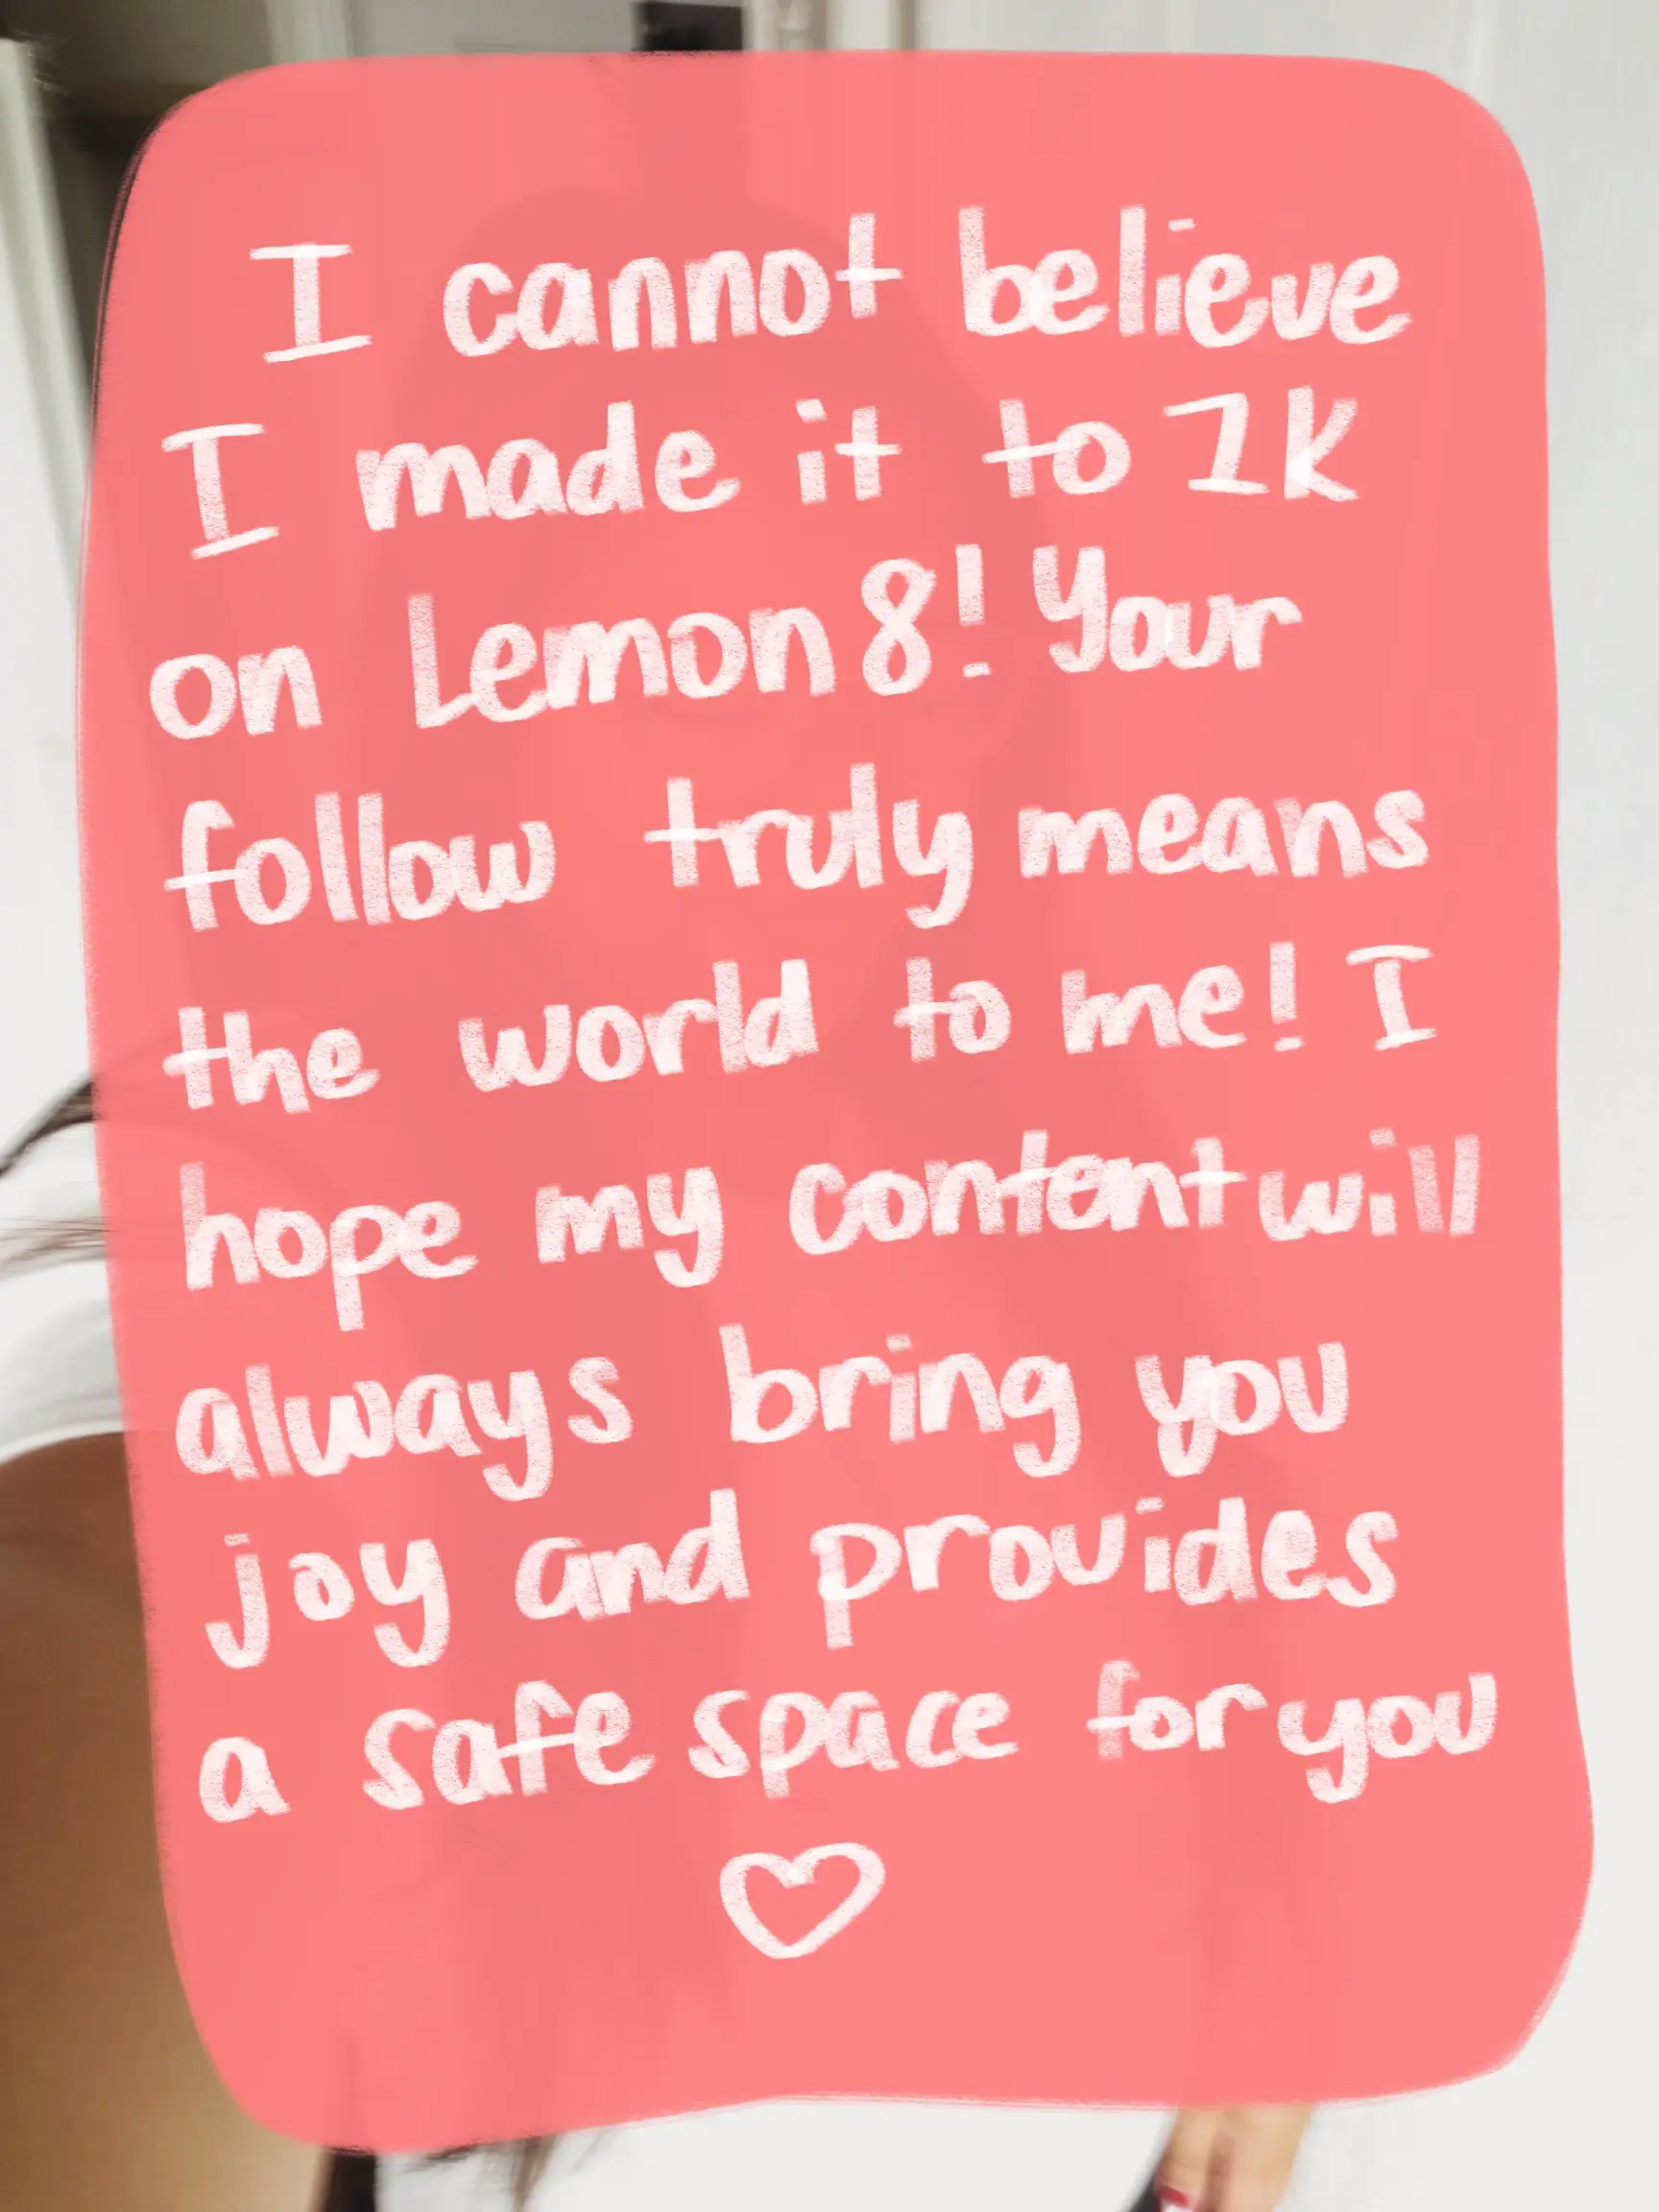 I cannot believe
I made it to 1K
on Lemon8! Your
follow truly means
the world to me! I
hope my content will
always bring you
joy and provides
a safe space for you